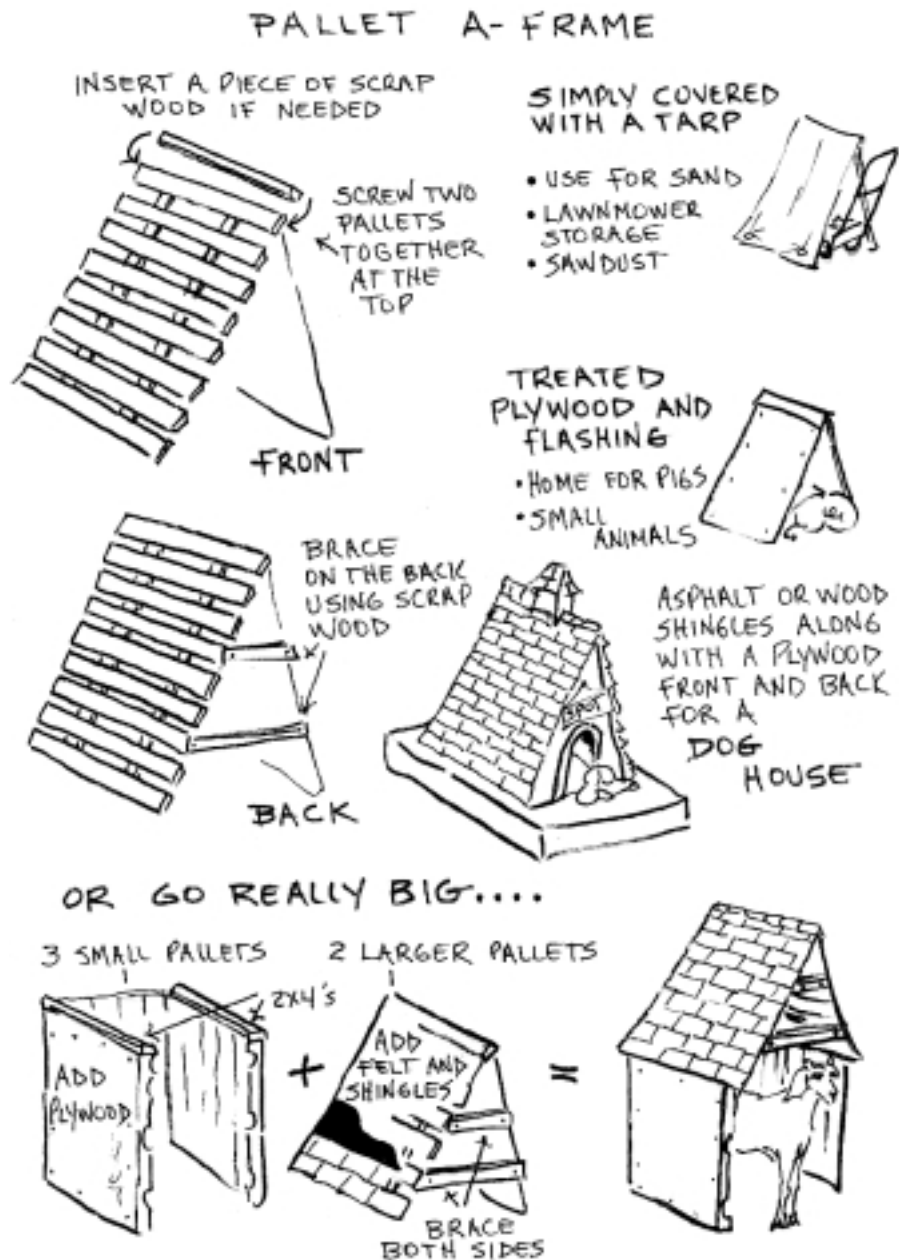 PALLET A-FRAME
INSERT A PIECE OF SCRAP
WOOD IF NEEDED
SCREW TWO
PALLETS
TOGETHER
AT THE
TOP
FRONT
SIMPLY COVERED
WITH A TARP
• USE FOR SAND
• LAWNMOWER
STORAGE
• SAWDUST
TREATED
PLYWOOD AND
FLASHING
• HOME FOR PIGS
• SMALL
ANIMALS
BRACE
ON THE BACK
USING SCRAP
WOOD
BACK
SPOT
ASPHALT OR WOOD
SHINGLES ALONG
WITH A PLYWOOD
FRONT AND BACK
FOR A
DOG
HOUSE
OR GO REALLY BIG....
3 SMALL PALLETS
2X4'S
ADD
PLYWOOD
+
2 LARGER PALLETS
ADD
FELT AND
SHINGLES
BRACE
BOTH SIDES
=